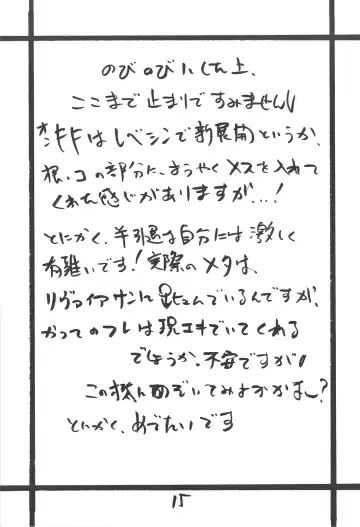 のびのびにした上、
ここまで止まりですみません
オンナキャはレベシンで新展開というか、
根っコの部分に、ようやくメスを入れて
くれた感じがありますが…!
とにかく、半引退な自分には激しく
有難いです!実際のメタは、
リヴァイアサンに 飛んでいるんですが、
かつてのフレは現エキでいてくれる
でしょうか。不安ですが
この機にのぞいてみよおかなー?
とにかく、めでたいです
15